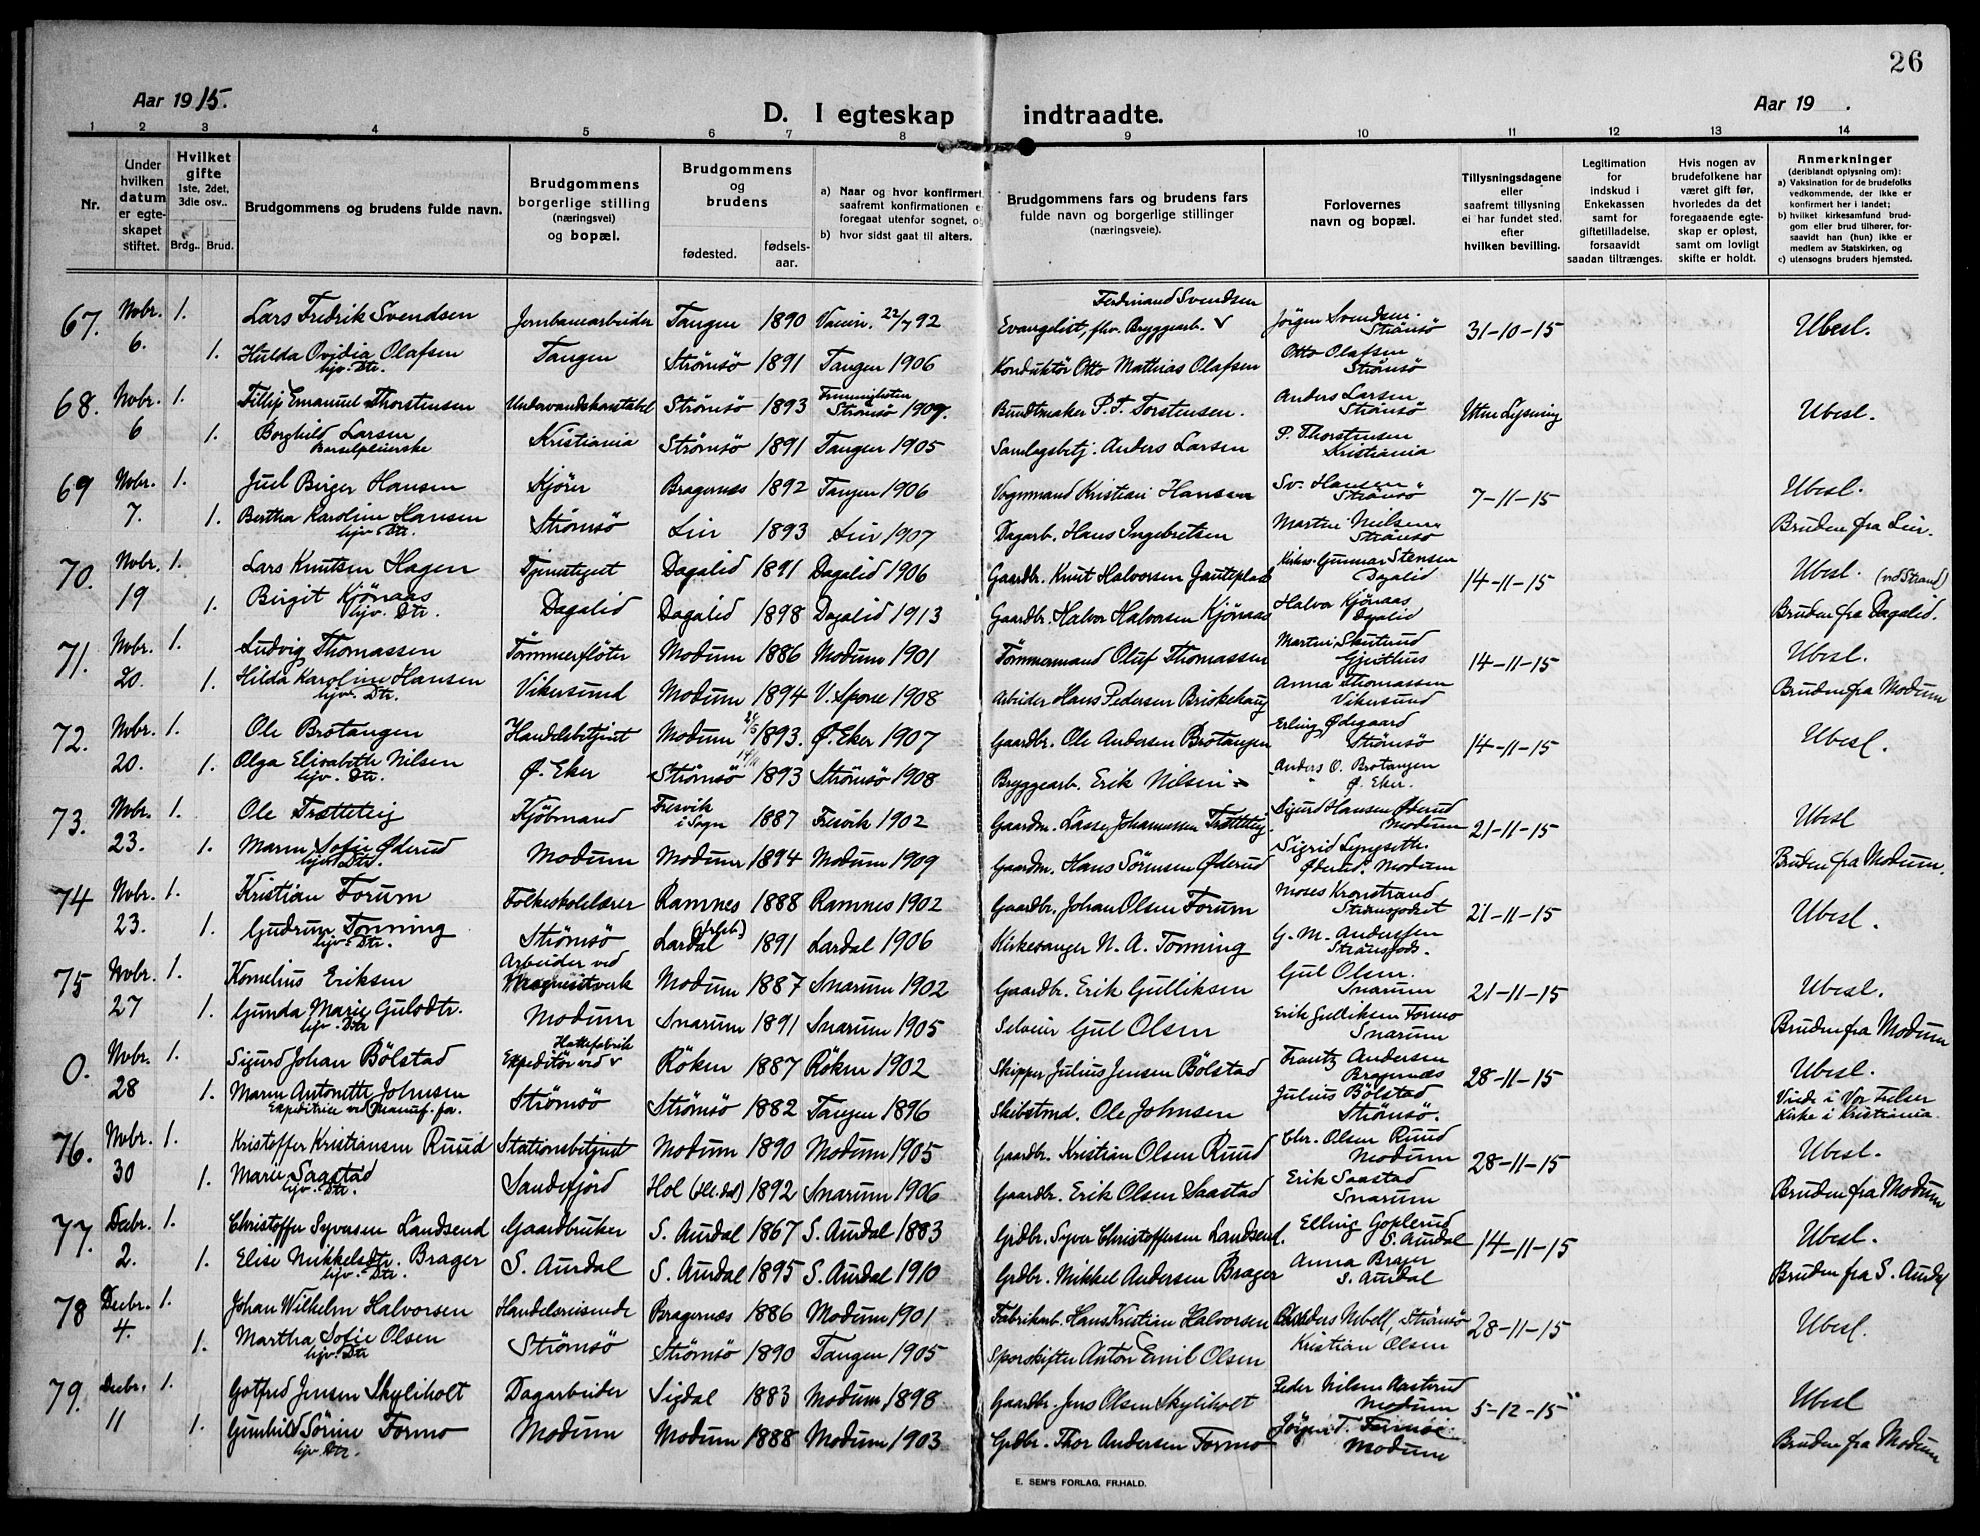 26
Aar 1915.
D. I egteskap indtraadte.
Aar 19 .
1 2 3 4 5 6 7 8 9 10 11 12 13 14
Nr.
Under hvilken datum er egteskapet stiftet.
Hvilket gifte 1ste, 2det, 3die osv..
Brdg. Brud.
Brudgommens og brudens fulde navn.
Brudgommens borgerlige stilling (næringsvei) og bopæl.
Brudgommens og brudens
fødested. fødselsaar.
a) Naar og hvor konfirmert, saafremt konfirmationen er foregaat utenfor sognet, og
b) hvor sidst gaat til alters.
Brudgommens fars og brudens fars fulde navn og borgerlige stillinger (næringsveie).
Forlovernes navn og bopæl.
Tillysningsdagene eller saafremt tillysning ei har fundet sted, efter hvilken bevilling.
Legitimation for indskud i Enkekassen samt for giftetilladelse, forsaavidt saadan tiltrænges.
Hvis nogen av brudefolkene har været gift før, hvorledes da det foregaaende egteskap er opløst, samt om lovlig skifte er holdt.
Anmerkninger (deriblandt oplysning om):
a) Vaksination for de brudefolks vedkommende, der ikke er konfirmert her i landet;
b) hvilket kirkesamfund brudgom eller brud tilhører, forsaavidt han (hun) ikke er medlem av Statskirken, og
c) utensogns bruders hjemsted.
67. Novbr. 1. Lars Fredrik Svendsen Jernbanearbeider Tangen 1890 22/7 92 Ferdinand Svendsen Evangelist, flv. Bryggearb. Jörgen Svendsen Strömsö 31-10-15 Ubesl.
6. 1. Hulda Ovidia Olafsen hjv. Dtr. Tangen Strömsö 1891 Tangen 1906 Konduktör Otto Mathias Olafsen Otto Olafsen Strömsö
68. Novbr. 1. Fillip Emanuel Thorstensen Strömsö 1893 Strömsö 1907. Bundtmaker P. T. Torstensen. Anders Larsen Strömsö Uten Lysning Ubesl.
6 1. Borghild Larsen Barselpleierske Kristiania Strömsö 1891 Tangen 1905 Samlagsbetj. Anders Larsen P. Thorstensen Kristiania
69 Novbr. 1. Juel Birger Hansen Kjörer Bragernæs 1892 Tangen 1906 Vognmand Kristian Hansen Sv. Hansen Strömsö 7-11-15 Ubesl.
7. 1. Bertha Karoline Hansen hjv. Dtr. Strömsö Lier 1893 Lier 1907 Dagarb. Hans Ingebretsen Martin Nilsen Strömsö Bruden fra Lier.
70. Novbr. 1. Lars Knutsen Hagen Tjenestegut Dagalid 1891 Dagalid 1906 Gaardbr. Knut Halvorsen Gunnar Stensen Dagalid 14-11-15 Ubesl. (vd Strand)
19 1. Birgit Kjönaas hjv. Dtr. Dagalid Dagalid 1898 Dagalid 1913 Gaardbr. Halvor Halvorsen Kjönaas Halvor Kjönaas Dagalid Bruden fra Dagalid.
71. Novbr. 1. Ludvig Thomassen Tömmerflöter Modum 1886 Modum 1901 Tömmermand Oluf Thomassen Martin Skutrud Gjethus 14-11-15 Ubesl.
20. 1. Hilda Karoline Hansen hjv. Dtr. Vikersund Modum 1894 V. Spone 1908 Arbeider Hans Pedersen Briskehaug Anna Thomassen Vikersund Bruden fra Modum
72. Novbr. 1. Ole Brotangen Handelsbetjent Modum 1893. Ø. Eker 1907 Gaardbr. Ole Andersen Brotangen Erling Ødegaard Strömsö 14-11-15 Ubesl.
20. 1. Olga Elisabeth Nilsen hjv. Dtr. Ø. Eker Strömsö 1893 Strömsö 1908 Bryggearb. Erik Nilsen Anders O. Brotangen Ø. Eker.
73. Novbr. 1. Ole Trætteteig Kjöbmand Fresvik i Sogn 1887 Fresvik 1902 Gaardm. Lasse Johannessen Trætteteig Sigurd Hansen Øderud Modum 21-11-15 Ubesl
23. 1. Maren Sofie Øderud hjv. Dtr. Modum Modum 1894 Modum 1909 Gaardm. Hans Sörensen Øderud Sigrid Lyngseth. Øderud. Modum Bruden fra Modum.
74 Novbr. 1. Kristian Forum Folkeskolelærer Ramnes 1888 Ramnes 1902 Gaardbr. Johan Olsen Forum Moses Kronstrand Strömsgodset 21-11-15 Ubesl.
23. 1. Gudrun Tonning hjv. Dtr. Strömsö Lardal 1891 Lardal 1906 Kirkesanger N. A. Tonning G. M. Anderssen Strömsgods.
75 Novbr. 1. Kornelius Eriksen Arbeider ved Magnesitverk Modum 1887 Snarum 1902 Gaardbr. Erik Gulliksen Gul Olsen. Snarum 21-11-15 Ubesl.
27 1. Gunda Marie Gulsdtr. hjv. Dtr Modum Snarum 1891 Snarum 1905 Selveier Gul Olsen Erik Gulliksen Formo Snarum Bruden fra Modum
0. Novbr. 1. Sigurd Johan Bölstad Expeditör ved Hattefabrik Röken 1887 Röken 1902 Skipper Julius Jensen Bölstad Frantz Andersen Bragernæs 28-11-15 Ubesl.
28 1. Maren Antonette Johnsen Expeditrice ved Manuf. fa. Strömsö Strömsö 1882 Tangen 1896 Skibstmd. Ole Johnsen Julius Bölstad Strömsö. Viede i Vor Frelser Kirke i Kristiania.
76. Novbr. 1. Kristoffer Kristiansen Ruud Stationsbetjent Modum 1890 Modum 1905 Gaardbr. Kristian Olsen Ruud Chr. Olsen Ruud Modum 28-11-15 Ubesl.
30 1. Marie Sagstad hjv. Dtr. Sandefjord Hol 1892 Snarum 1906 Gaardbr. Erik Olsen Saastad Erik Saastad Snarum Bruden fra Modum
77. Decbr. 1. Christoffer Syversen Landsend Gaardbruker S. Aurdal 1867 S. Aurdal 1883 Grdbr. Syver Christoffersen Landsend. Elling Goplerud S. Aurdal 14-11-15 Ubesl.
2. 1. Elise Mikkelsdtr. Brager hjv. Dtr. S. Aurdal S. Aurdal 1895 S. Aurdal 1910 Grdbr. Mikkel Andersen Brager Anna Brager S. Aurdal Bruden fra S. Aurdal
78 Decbr. 1. Johan Wilhelm Halvorsen Handelsreisende Bragernæs 1886 Modum 1901 Fabrikarb. Hans Kristian Halvorsen Strömsö 28-11-15 Ubesl.
4. 1. Martha Sofie Olsen hjv. Dtr Strömsö Strömsö 1890 Tangen 1905 Sporskifter Anton Emil Olsen Kristian Olsen
79. Decbr. 1. Gotfred Jensen Skyliholt Dagarbeider Sigdal 1883 Modum 1898 Gaardbr. Jens Olsen Skyliholt Peder Nilsen Aasterud Modum 5-12-15 Ubesl
11 1. Gunhild Sörine Formo hjv. Dtr. Modum Modum 1888 Modum 1903 Grdbr. Thor Andersen Formo Jörgen T. Formo Modum Bruden fra Modum
E. SEM'S FORLAG, FR.HALD.